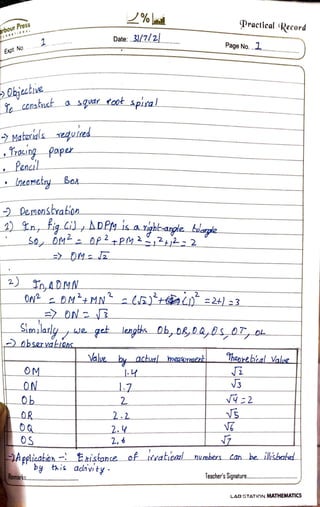 Practical Record
rbour Press
INTERNATIONAL
Expt. No. 1
Date: 31/7/21
Page No. 1
→ Objective
To construct a squar root spiral
→ Materials required
• Tracing paper
• Pencil
• Geometry Box
→ Demonstration
1) In, fig (i), ΔOPM is a right-angle triangle
So, OM² = OP² + PM² = 1² + 1² = 2
=> OM = √2
2) In, ΔOMN
ON² = OM² + MN² = (√2)² + (1)² = 2+1 = 3
=> ON = √3
Similarly, we get lengths Ob, OR, OQ, OS, OT, OL
→ Observations
Value by actual measurement Theoretical Value
OM 1.4 √2
ON 1.7 √3
Ob 2 √4 = 2
OR 2.2 √5
OQ 2.4 √6
OS 2.6 √7
→ Application -: Existance of irrational numbers can be illistrated
by this activity.
Remarks
Teacher's Signature
LAB STATION MATHEMATICS